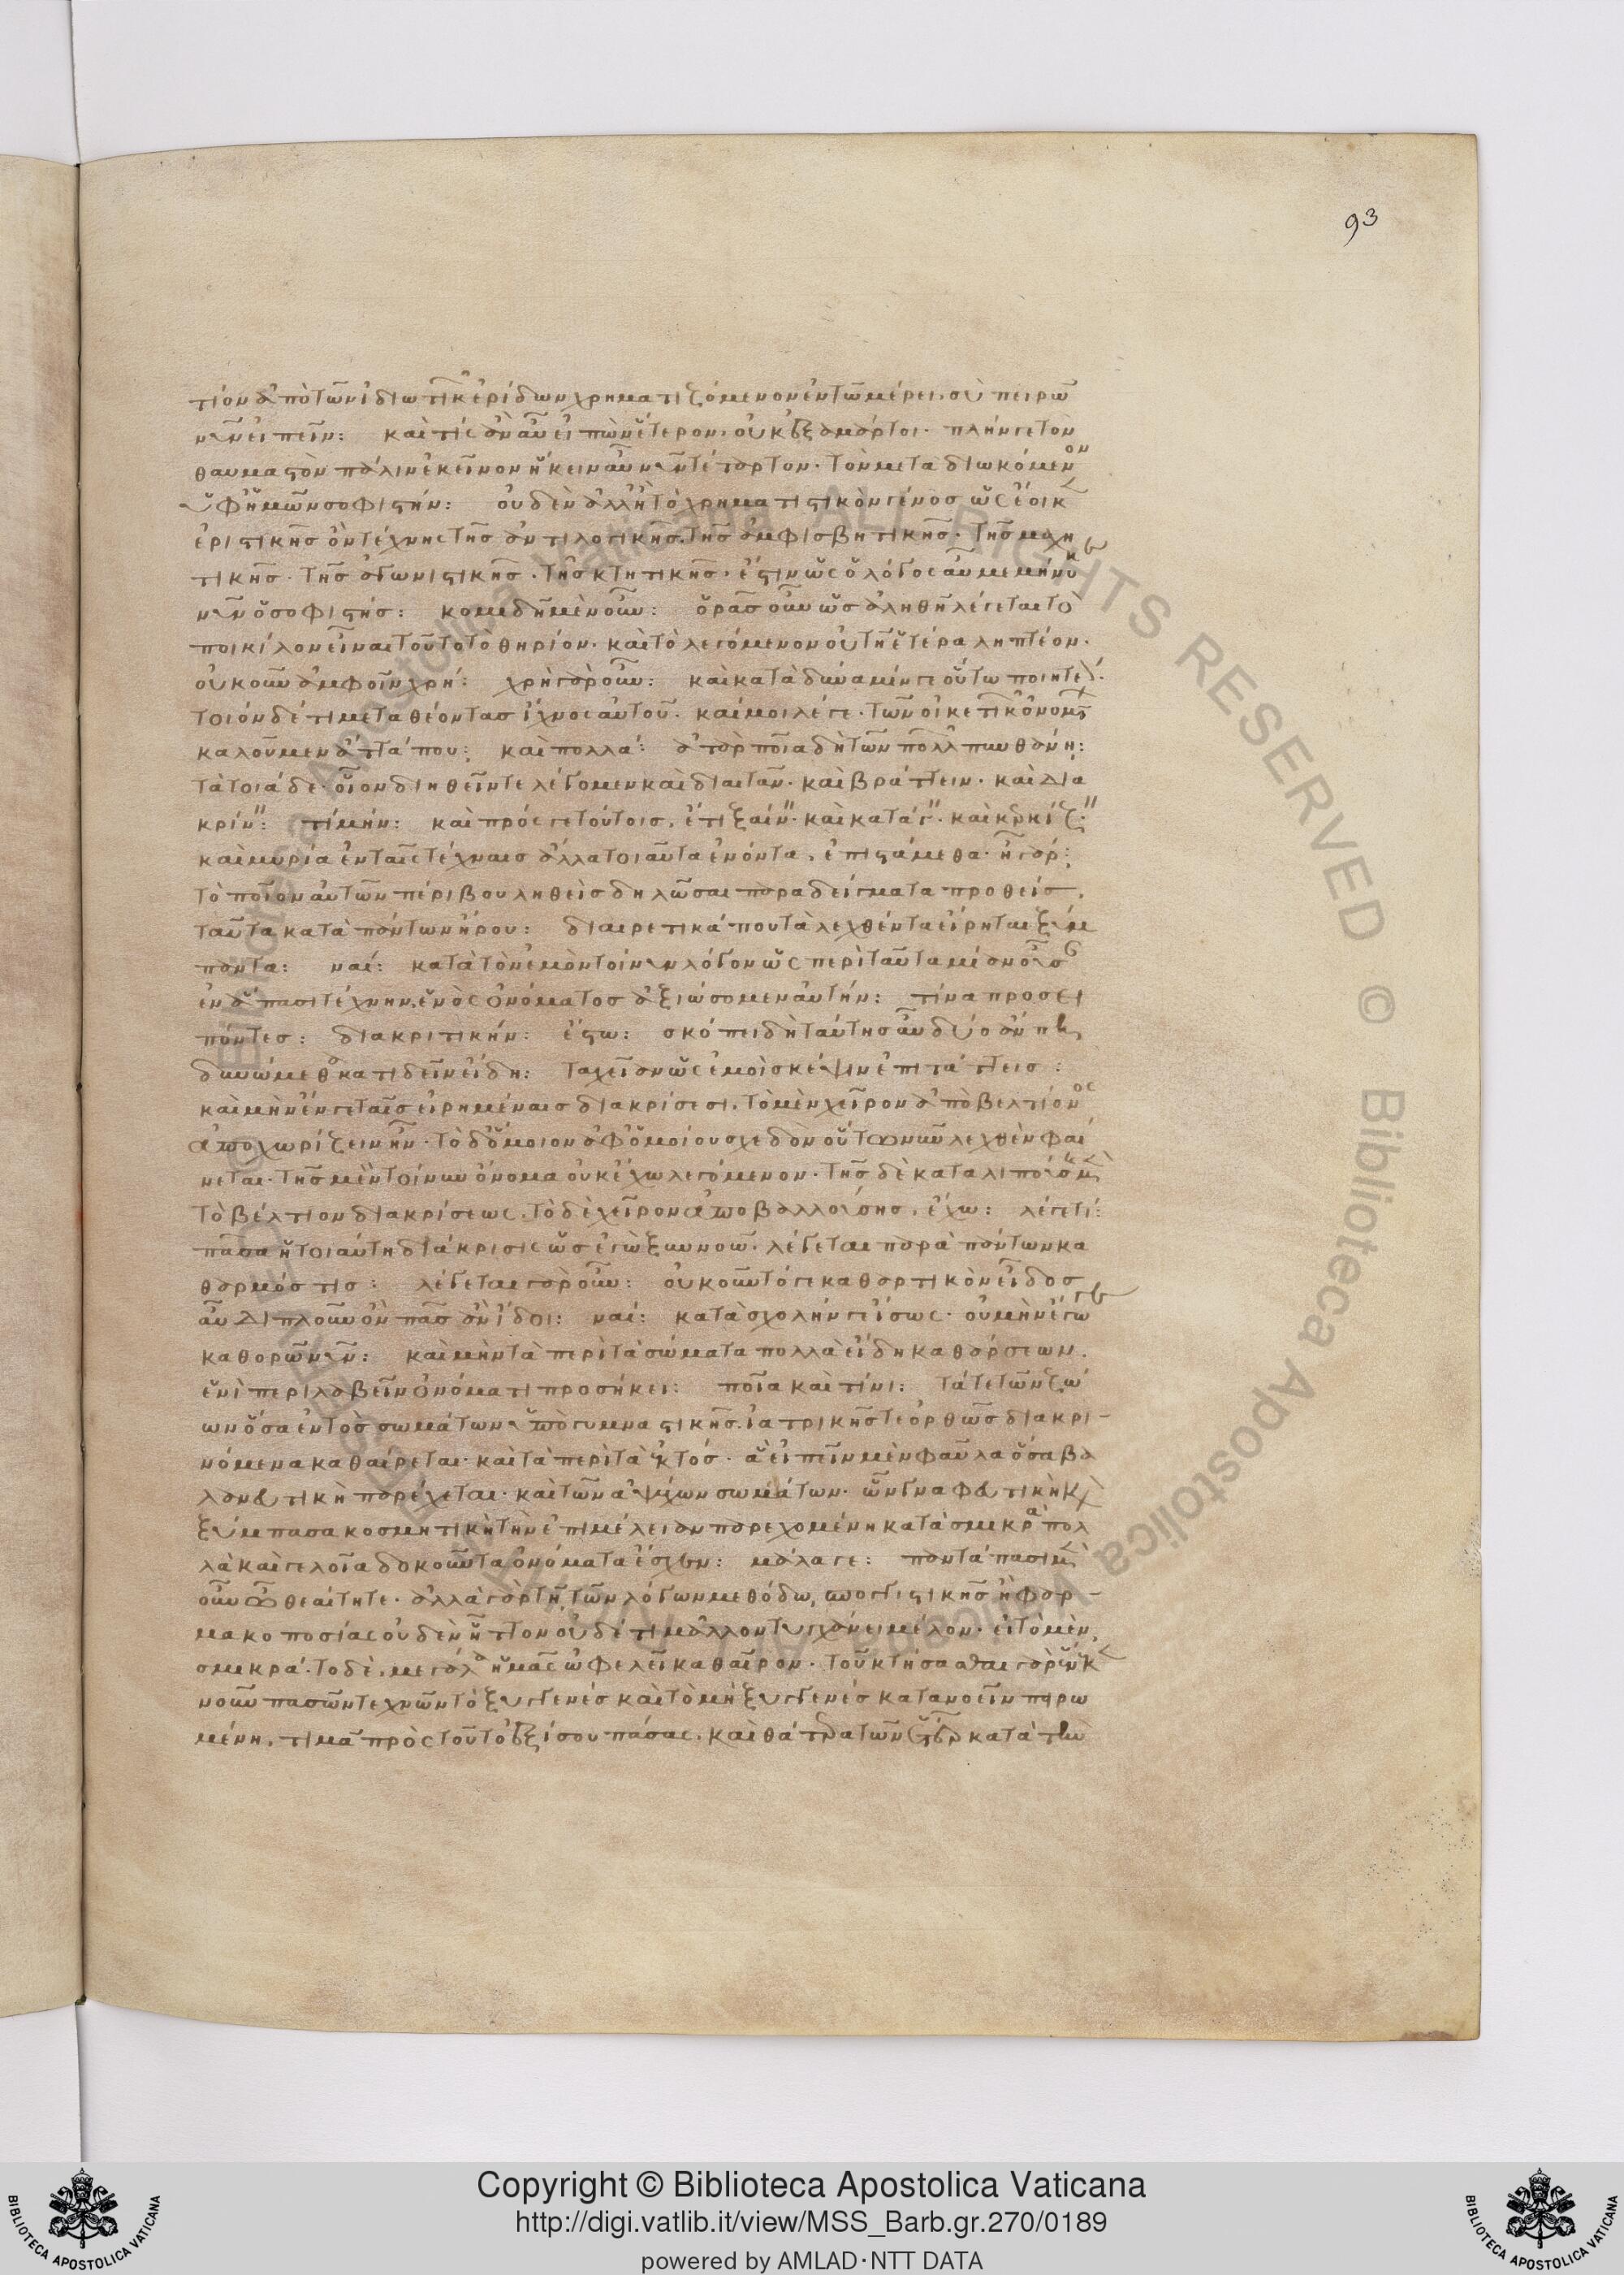 93
τίον ἀπὸ τῶν ἰδιωτικ ἐρίδων χρηματιζόμενον ἐν τῶ μέρει, σὺ πειρῶ
νῦν εἰπεῖν: καὶ τίς ἂν αὖ εἰπὼν ἕτερον, οὐκ ἐξαμάρτοι. πλήν γε τὸν
θαυμαστὸν πάλιν ἐκεῖνον ἥκειν αὖ νῦν τέταρτον. τὸν μεταδιωκόμενον
ὑφ' ἡμῶν σοφιστήν: οὐδὲν ἀλλ' ἢ τὸ χρηματιστικὸν γένος ὡς ἔοικ
ἐριστικῆς ὂν τέχνης τῆς ἀντιλογικῆς. τῆς ἀμφισβητικῆς. τῆς μαχη
τικῆς. τῆς ἀγωνιστικῆς. τῆς κτητικῆς. ἔστιν ὡς ὁ λόγος αὖ μεμήνυκεν
νῦν ὁ σοφιστής: κομιδῆ μὲν οὖν: ὁρᾶς οὖν ὡς ἀληθῆ λέγεται τὸ
ποικίλον εἶναι τοῦτο τὸ θηρίον. καὶ τὸ λεγόμενον οὐ τῆ ἑτέρα ληπτέον.
οὐκοῦν ἀμφοῖν χρή: χρὴ γὰρ οὖν: καὶ κατὰ δύναμίν γε οὕτω ποιητέ.
τοιόνδέ τι μεταθέοντας ἴχνος αὐτοῦ. καί μοι λέγε. τῶν οἰκετικ ὀνομτ
καλοῦμεν ἄττά που: καὶ πολλά: ἀτὰρ ποῖα δὴ τῶν πολλ πυνθάνη:
τὰ τοιάδε. οἷον διηθεῖν τε λέγομεν καὶ διαιτᾶν. καὶ βράττειν. καὶ δια
κρίν: τί μήν: καὶ πρός γε τούτοις, ἔτι ξαίν. καὶ κατάγ. καὶ κερκίζ.
καὶ μυρία ἐν ταῖς τέχναις ἄλλα τοιαῦτα ἐνόντα, ἐπιστάμεθα. ἦ γάρ:
τὸ ποῖον αὐτῶν πέρι βουληθεὶς δηλῶσαι παραδείγματα προθείς,
ταῦτα κατὰ πάντων ἤρου: διαιρετικά που τὰ λεχθέντα εἴρηται ξύμ
παντα: ναί: κατὰ τὸν ἐμὸν τοίνυν λόγον ὡς περὶ ταῦτα μίαν οὖσ
ἐν ἅπασι τέχνην, ἑνὸς ὀνόματος ἀξιώσομεν αὐτήν: τίνα προσει
πόντες: διακριτικήν: ἔστω: σκόπει δὴ ταύτης αὖ δύο ἄν πη
δυνώμεθα κατιδεῖν εἴδη: ταχεῖαν ὡς ἐμοὶ σκέψιν ἐπιτάττεις:
καὶ μὴν ἔν γε ταῖς εἰρημέναις διακρίσεσι, τὸ μὲν χεῖρον ἀπὸ βελτίονος
ἀποχωρίζειν ἦν. τὸ δ' ὅμοιον ἀφ' ὁμοίου σχεδὸν οὕτω νῦν λεχθὲν φαί
νεται. τῆς μὲν τοίνυν ὄνομα οὐκ ἔχω λεγόμενον. τῆς δὲ καταλιπούσ μὲν
τὸ βέλτιον διακρίσεως, τὸ δὲ χεῖρον ἀποβαλλούσης, ἔχω: λέγε τί:
πᾶσα ἡ τοιαύτη διάκρισις ὡς ἐγὼ ξυννοῶ. λέγεται παρὰ πάντων κα
θαρμός τις: λέγεται γὰρ οὖν: οὐκοῦν τό γε καθαρτικὸν εἶδος
αὖ διπλοῦν ὂν πᾶς ἂν ἴδοι: ναί: κατὰ σχολήν γε ἴσως. οὐ μὴν ἔγωγε
καθορῶ νῦν: καὶ μὴν τὰ περὶ τὰ σώματα πολλὰ εἴδη καθάρσεων,
ἑνὶ περιλαβεῖν ὀνόματι προσήκει: ποῖα καὶ τίνι: τά τε τῶν ζώ
ων ὅσα ἐντὸς σωμάτων ὑπὸ γυμναστικῆς. ἰατρικῆς τε ὀρθῶς διακρι-
νόμενα καθαίρεται. καὶ τὰ περὶ τὰ ἐκτός. ἃ εἰπεῖν μὲν φαῦλα ὅσα βα
λανευτικὴ παρέχεται. καὶ τῶν ἀψύχων σωμάτων. ὧν γναφευτικὴ καὶ
ξύμπασα κοσμητικὴ τὴν ἐπιμέλειαν παρεχομένη κατὰ σμικρὰ πολ
λὰ καὶ γελοῖα δοκοῦντα ὀνόματα ἔσχεν: μάλα γε: παντάπασι μὲν
οὖν ὦ θεαίτητε. ἀλλὰ γὰρ τῆ τῶν λόγων μεθόδω, σπογγιστικῆς ἢ φαρ-
μακοποσίας οὐδὲν ἧττον οὐδέ τι μᾶλλον τυγχάνει μέλον. εἰ τὸ μὲν,
σμικρά. τὸ δὲ, μεγάλα ἡμᾶς ὠφελεῖ καθαῖρον. τοῦ κτήσασθαι γὰρ ἕνεκ
νοῦν πασῶν τεχνῶν τὸ ξυγγενὲς καὶ τὸ μὴ ξυγγενὲς κατανοεῖν πειρω
μένη, τιμᾶ πρὸς τοῦτο ἐξ ἴσου πάσας, καὶ θάτερα τῶν ἑτέρ κατὰ τὴν
Copyright © Biblioteca Apostolica Vaticana
http://digi.vatlib.it/view/MSS_Barb.gr.270/0189
powered by AMLAD·NTT DATA